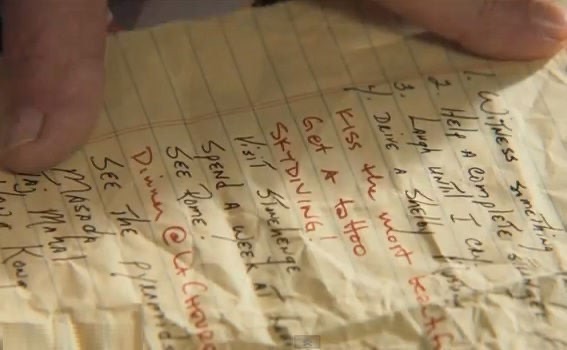 1. Witness something
2. Help a complete stranger
3. Laugh until I cry
4. Drive a Shelby
Kiss the most beautiful
Get A tattoo
SKYDIVING!
Visit Stonehenge
Spend a week at
See Rome.
Dinner @
See The Pyramids
Masada
Taj Mahal
Hong Kong